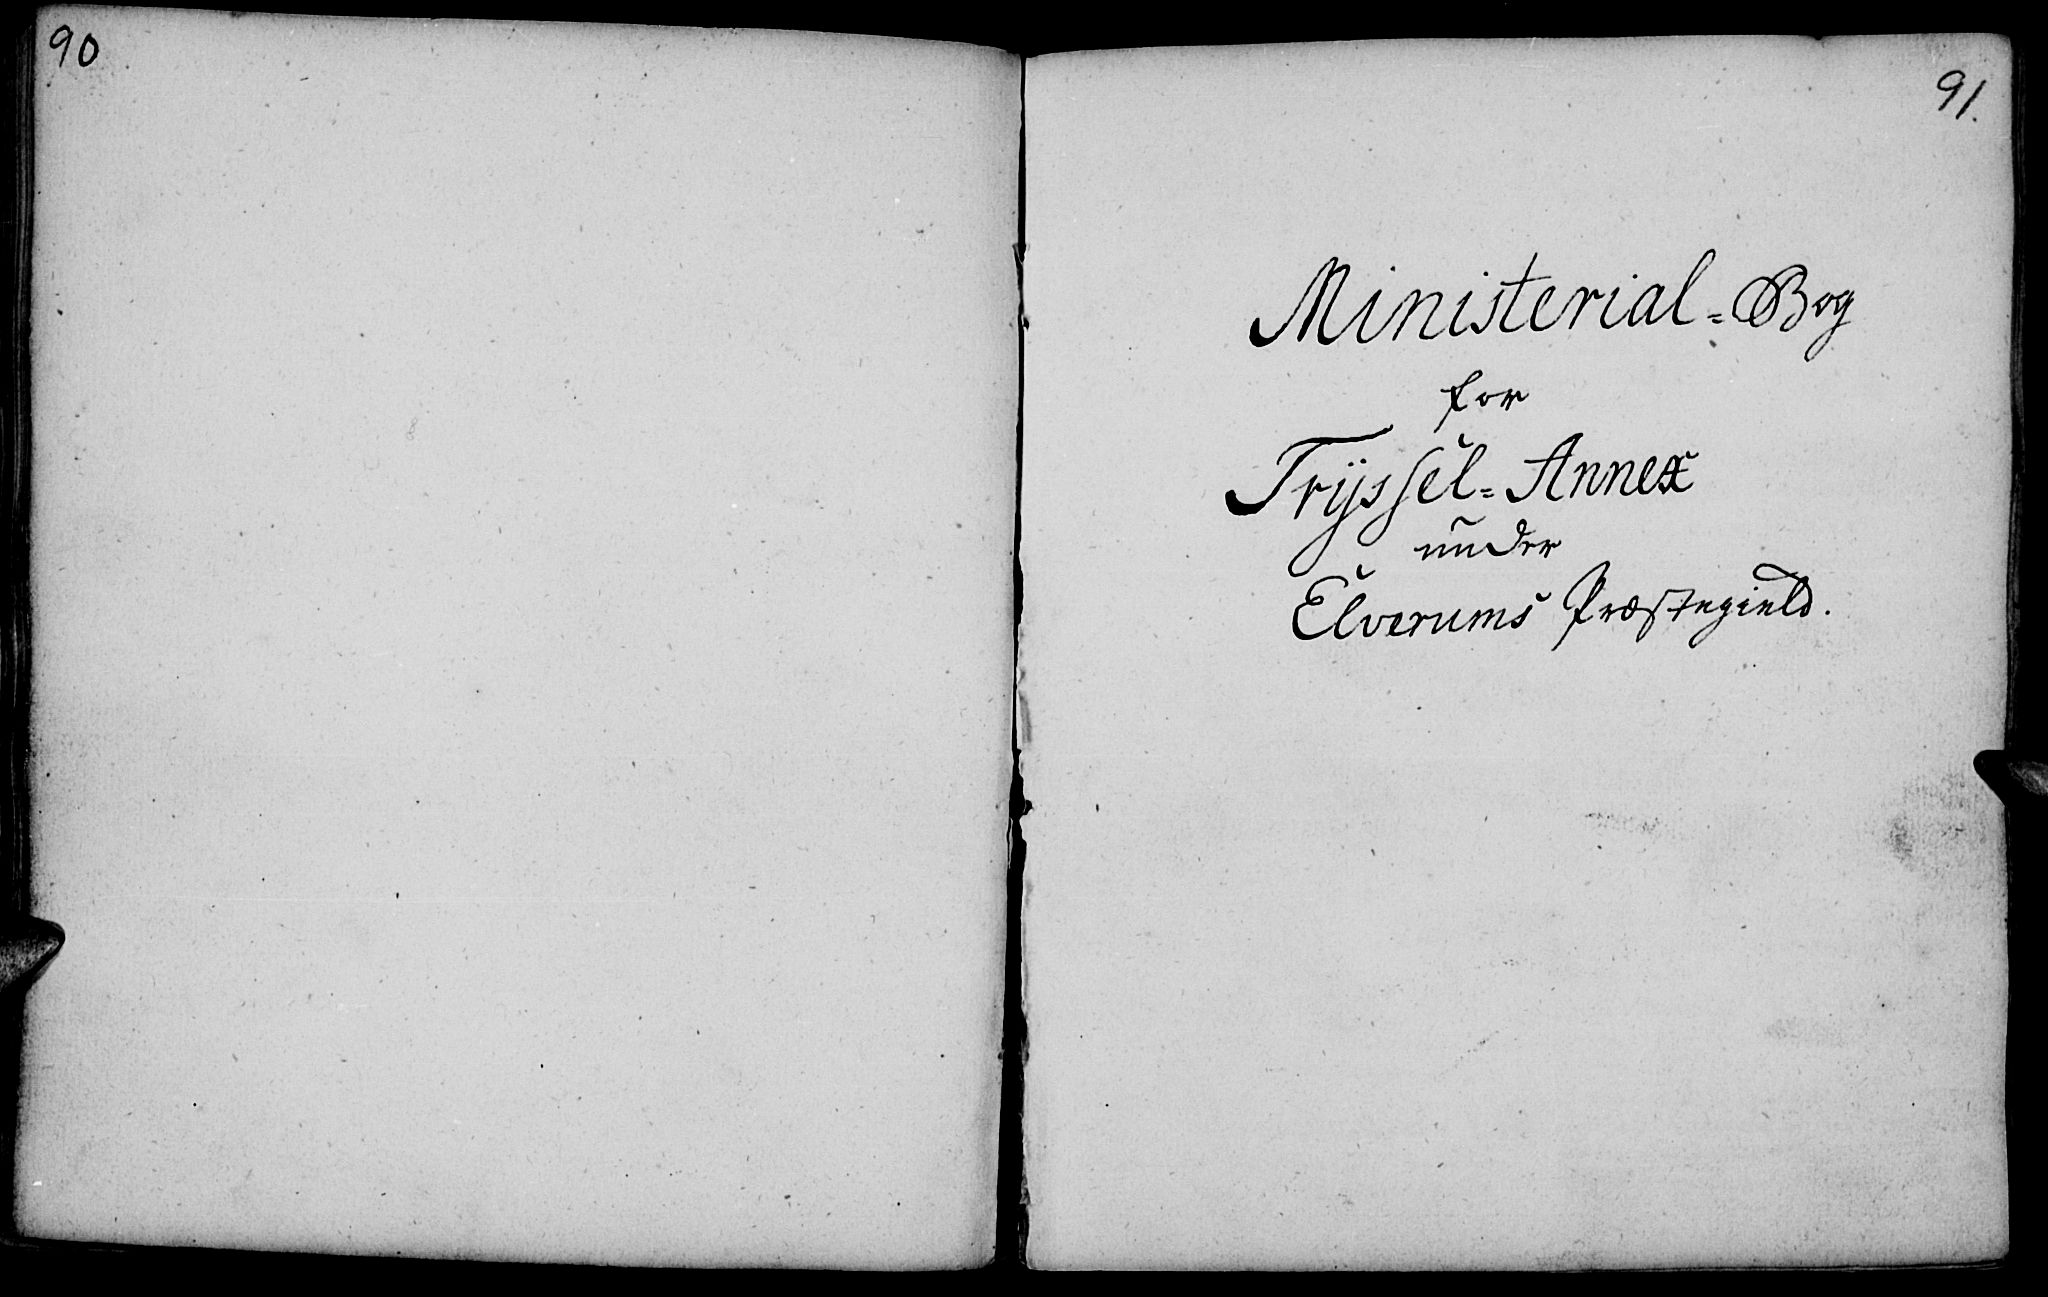 90
91.
Ministerial=Bog
for
Tryssel=Annex
under
Elverums Præstegield.